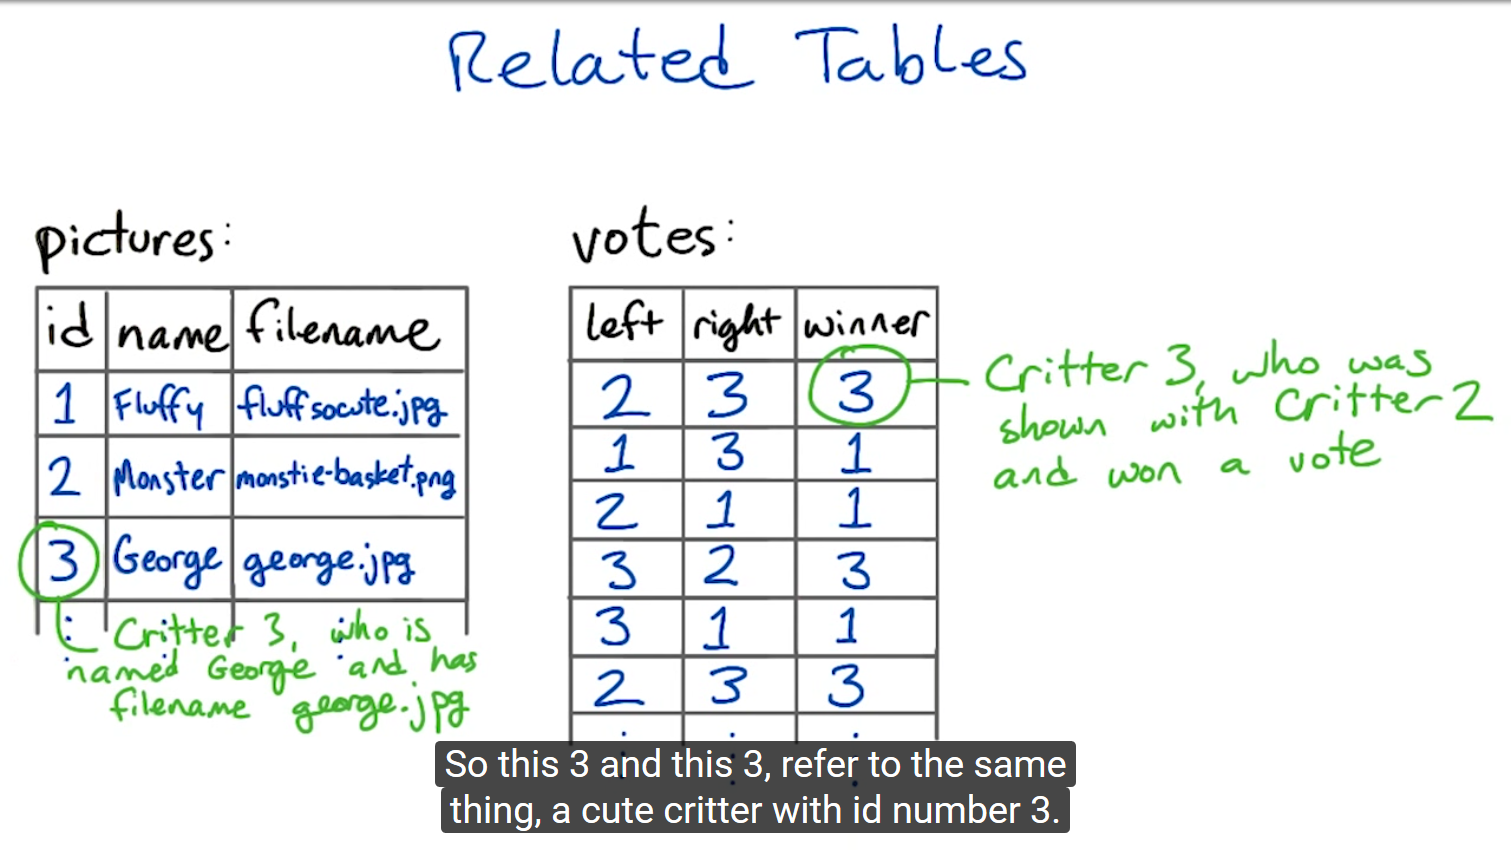 Related Tables
pictures:
id name filename
1 Fluffy fluffsocute.jpg
2 Monster monstie-basket.png
3 George george.jpg
Critter 3, who is
named George and has
filename george.jpg
votes:
left right winner
2 3 3
1 3 1
2 1 1
3 2 3
3 1 1
2 3 3
Critter 3, who was
shown with Critter 2
and won a vote
So this 3 and this 3, refer to the same
thing, a cute critter with id number 3.